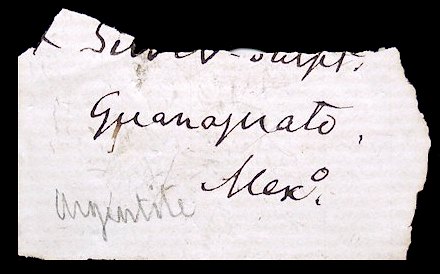 Silver-Sulpht.
Guanajuato,
Mexº.
Argentite